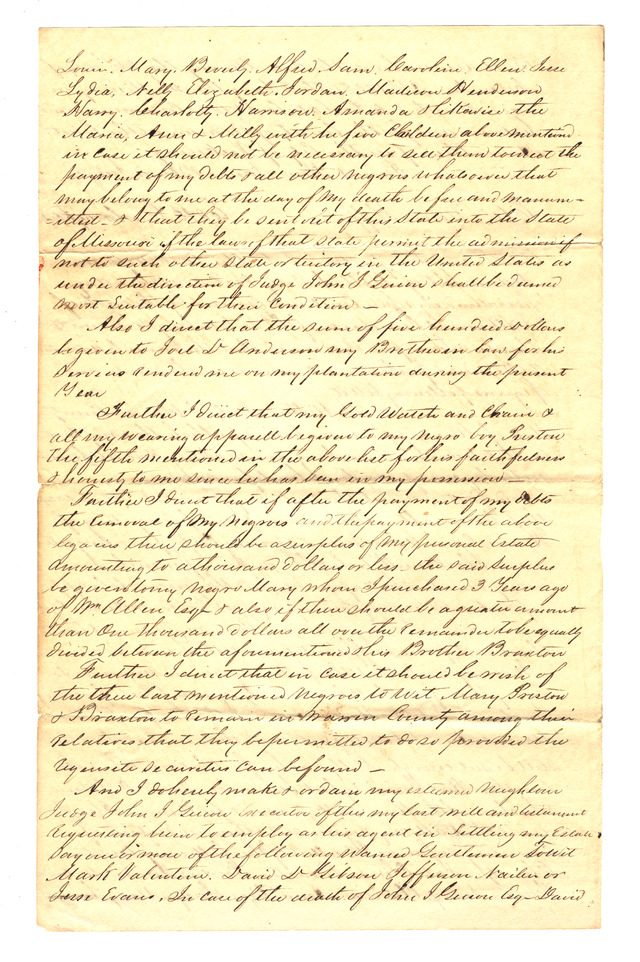 Louis. Mary. Beverly. Alfred. Sam. Caroline. Ellen. Jesse
Lydia, Nelly Elizabeth. Jordan. Madison Henderson
Harry. Charlotty. Harrison. Amanda & likewise the
Maria, Ann & Milly with the five Children above mentiond
in case it should not be necessary to sell them to meet the
payment of my debts & all other negroes whatsoever that
may belong to me at the day of my death be free and manum-
-itted - & that they be sent out of this State into the State
of Missouri if the laws of that state permit the admission if
not to such other state or teritory in the United States as
under the direction of Judge John I Guion shall be deemed
most Suitable for their Condition -
Also I direct that the sum of five hundred Dollars
be given to Joel D Anderson my Brother in law for his
Services rendered me on my plantation during the present
Year
Farther I direct that my Gold Watch and Chain &
all my wearing apparell be given to my negro boy Preston
the fifth mentioned in the above list for his faithfulness
& honesty to me since he has been in my possession -
Farther I direct that if after the payment of my debts
the removal of my Negroes and the payment of the above
legacies there should be a surplus of my personal Estate
amounting to a thousand dollars or less - the said surplus
be given to my Negro Mary whom I purchased 3 Years ago
of Wm Allen Esq & also if there should be a greater amount
than One thousand dollars all over the remainder to be equally
divided between the aforementioned & his Brother Braxton
Further I direct that in case it should be wish of
the three last mentioned Negroes to Wit Mary Preston
& Braxton to remain in Warren County among their
relatives that they be permitted to do so provided the
requisite securities can be found -
And I do hereby make & ordain my esteemed neighbour
Judge John I Guion executor of this my last will and testament
requesting him to employ as his agent in Settling my Estate
any one or more of the following named Gentlemen To Wit
Mark Valentine. David D Gibson Jefferson Nailer or
Jesse Evans, In case of the death of John I Guion Esq - David